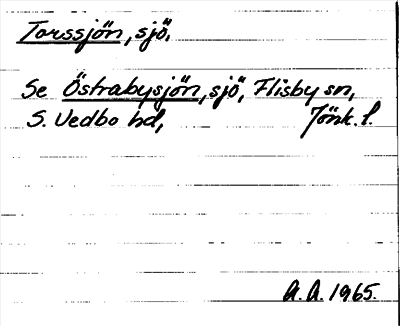 Torssjön, sjö,
Se Östrabysjön, sjö, Flisby sn,
S. Vedbo hd, Jönk. l.
A. A. 1965.